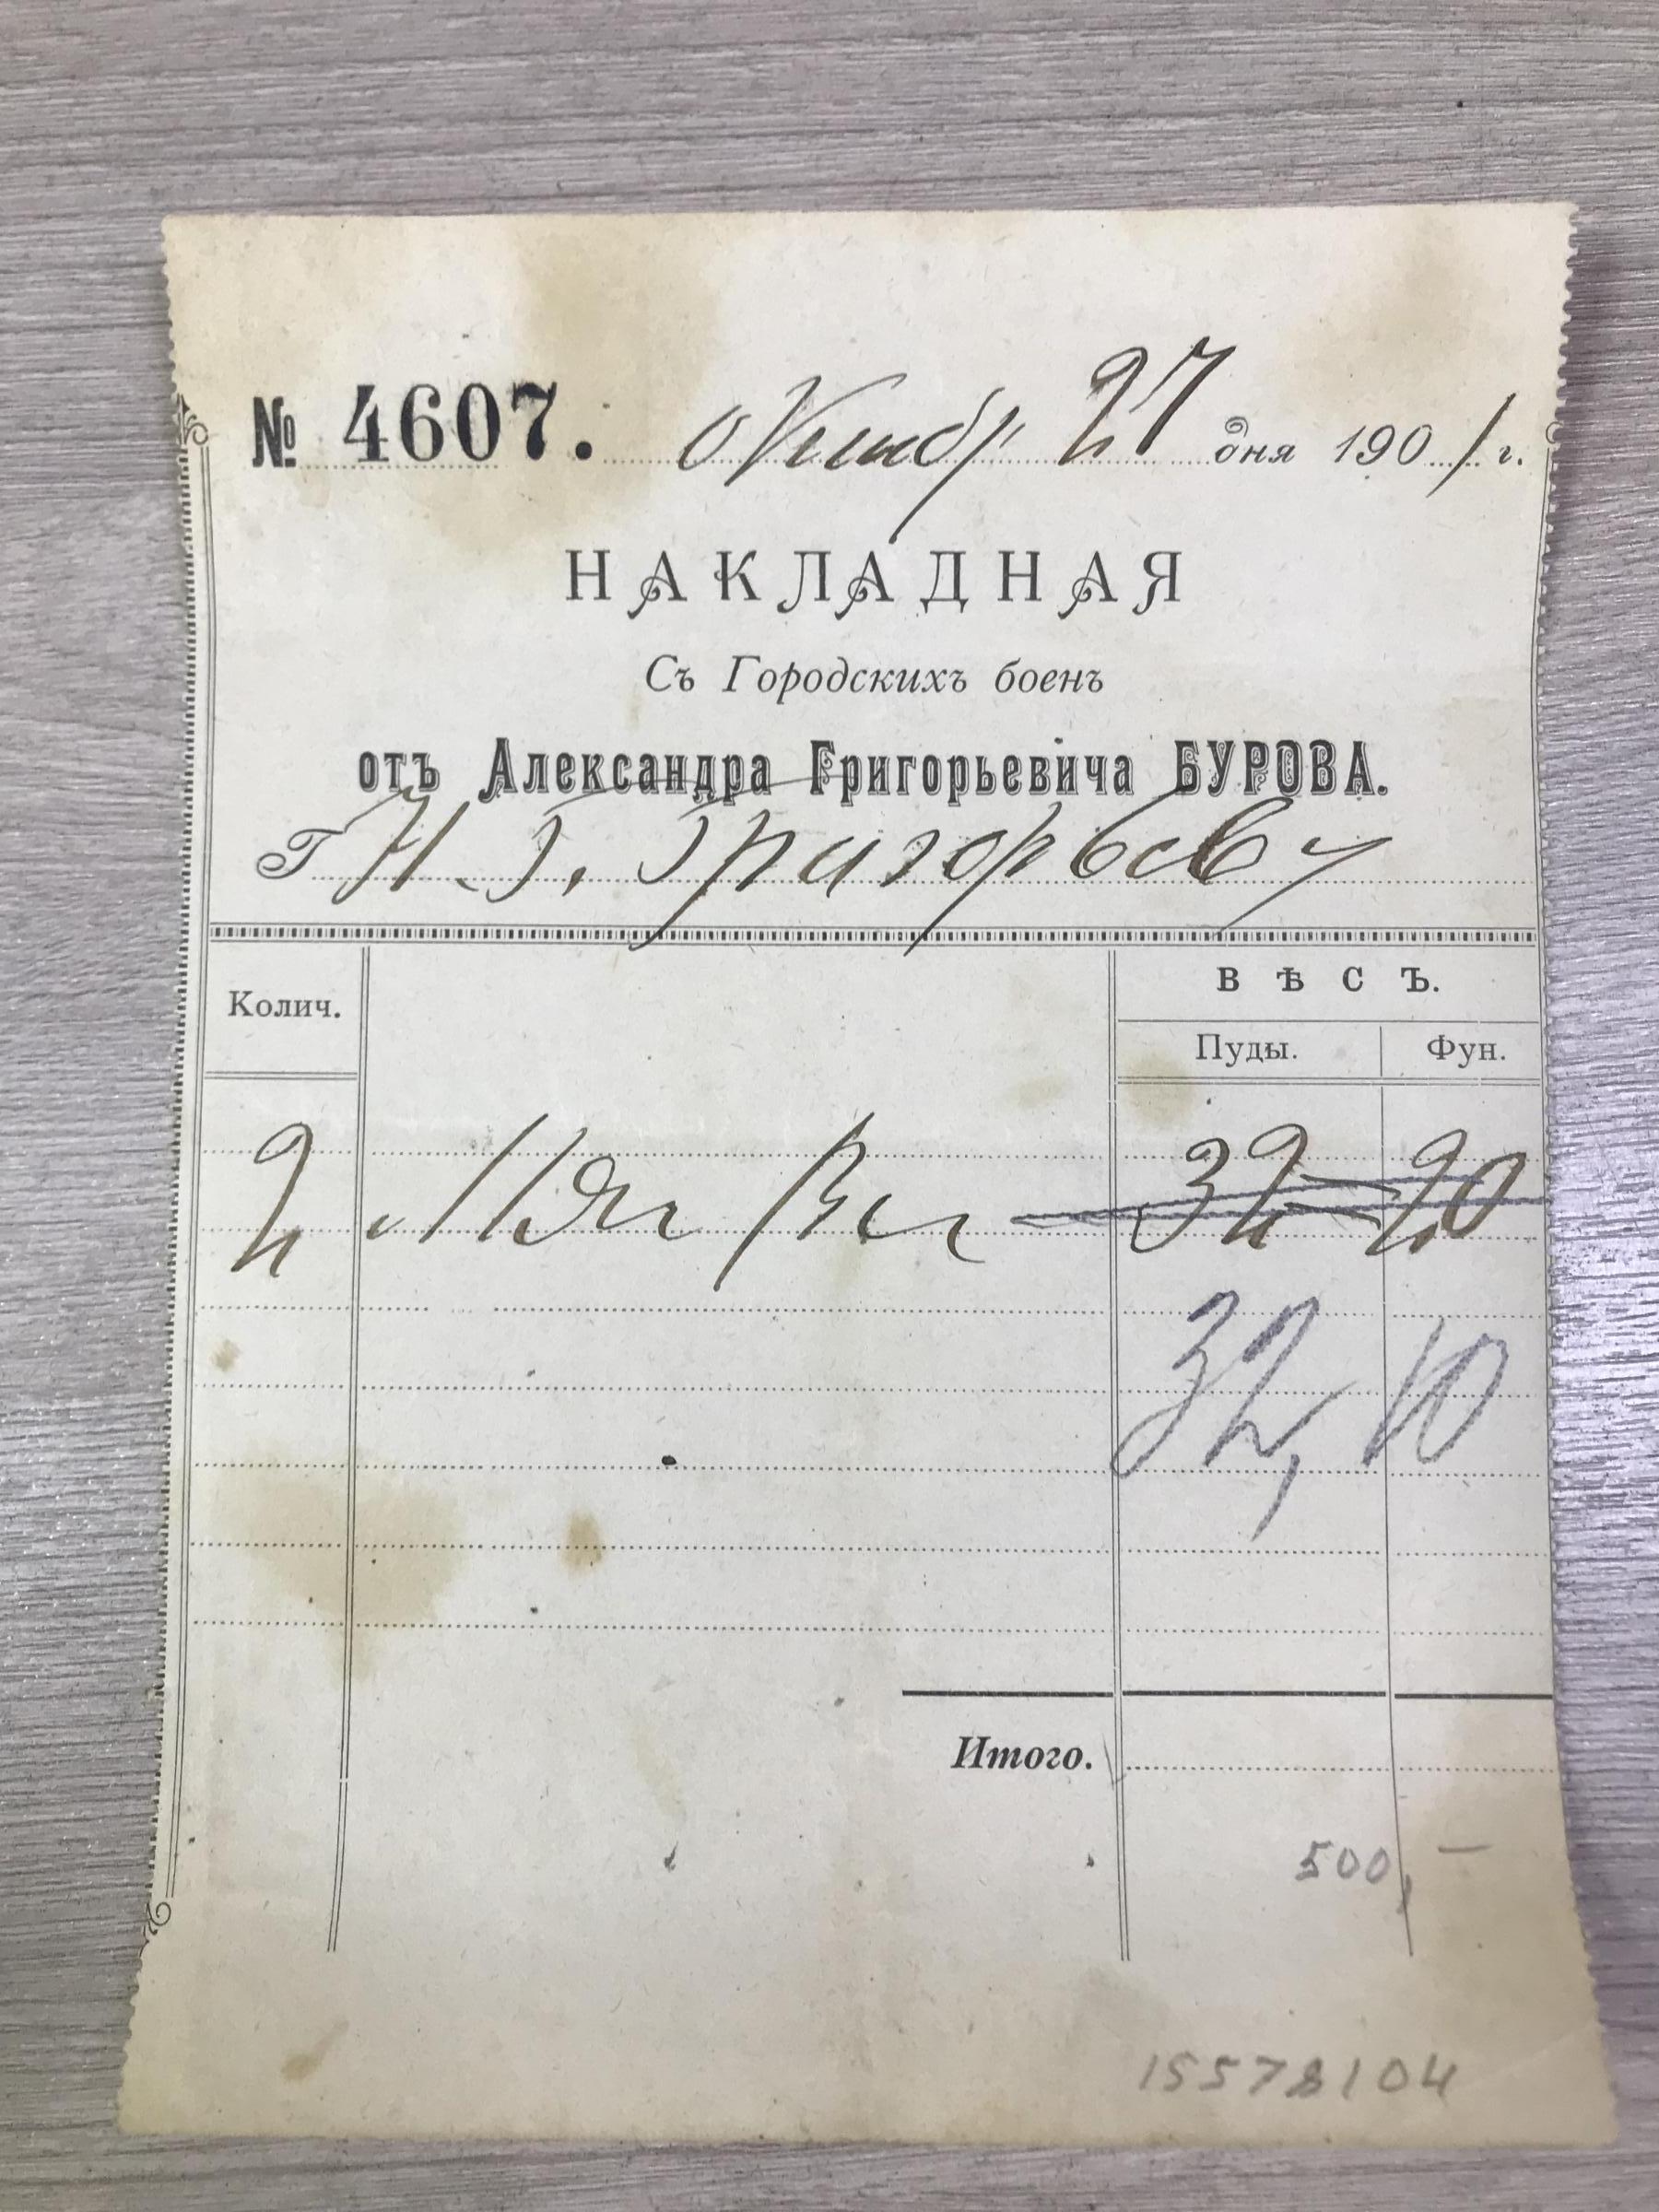 № 4607. Октябр 27 дня 1901 г.
НАКЛАДНАЯ
Съ Городскихъ боенъ
отъ Александра Григорьевича БУРОВА.
Г Н. Г. Григорьеву
Колич. ВѢСЪ.
Пуды. Фун.
2 32 20
32, 10
Итого.
500, —
15578104